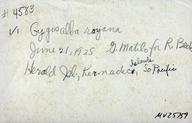 # 4583
VI Gygis alba royana
June 21, 1925 G. Matilo for R. Beck
Herald Isl., Kermadec Islands, So Pacific
MV25759